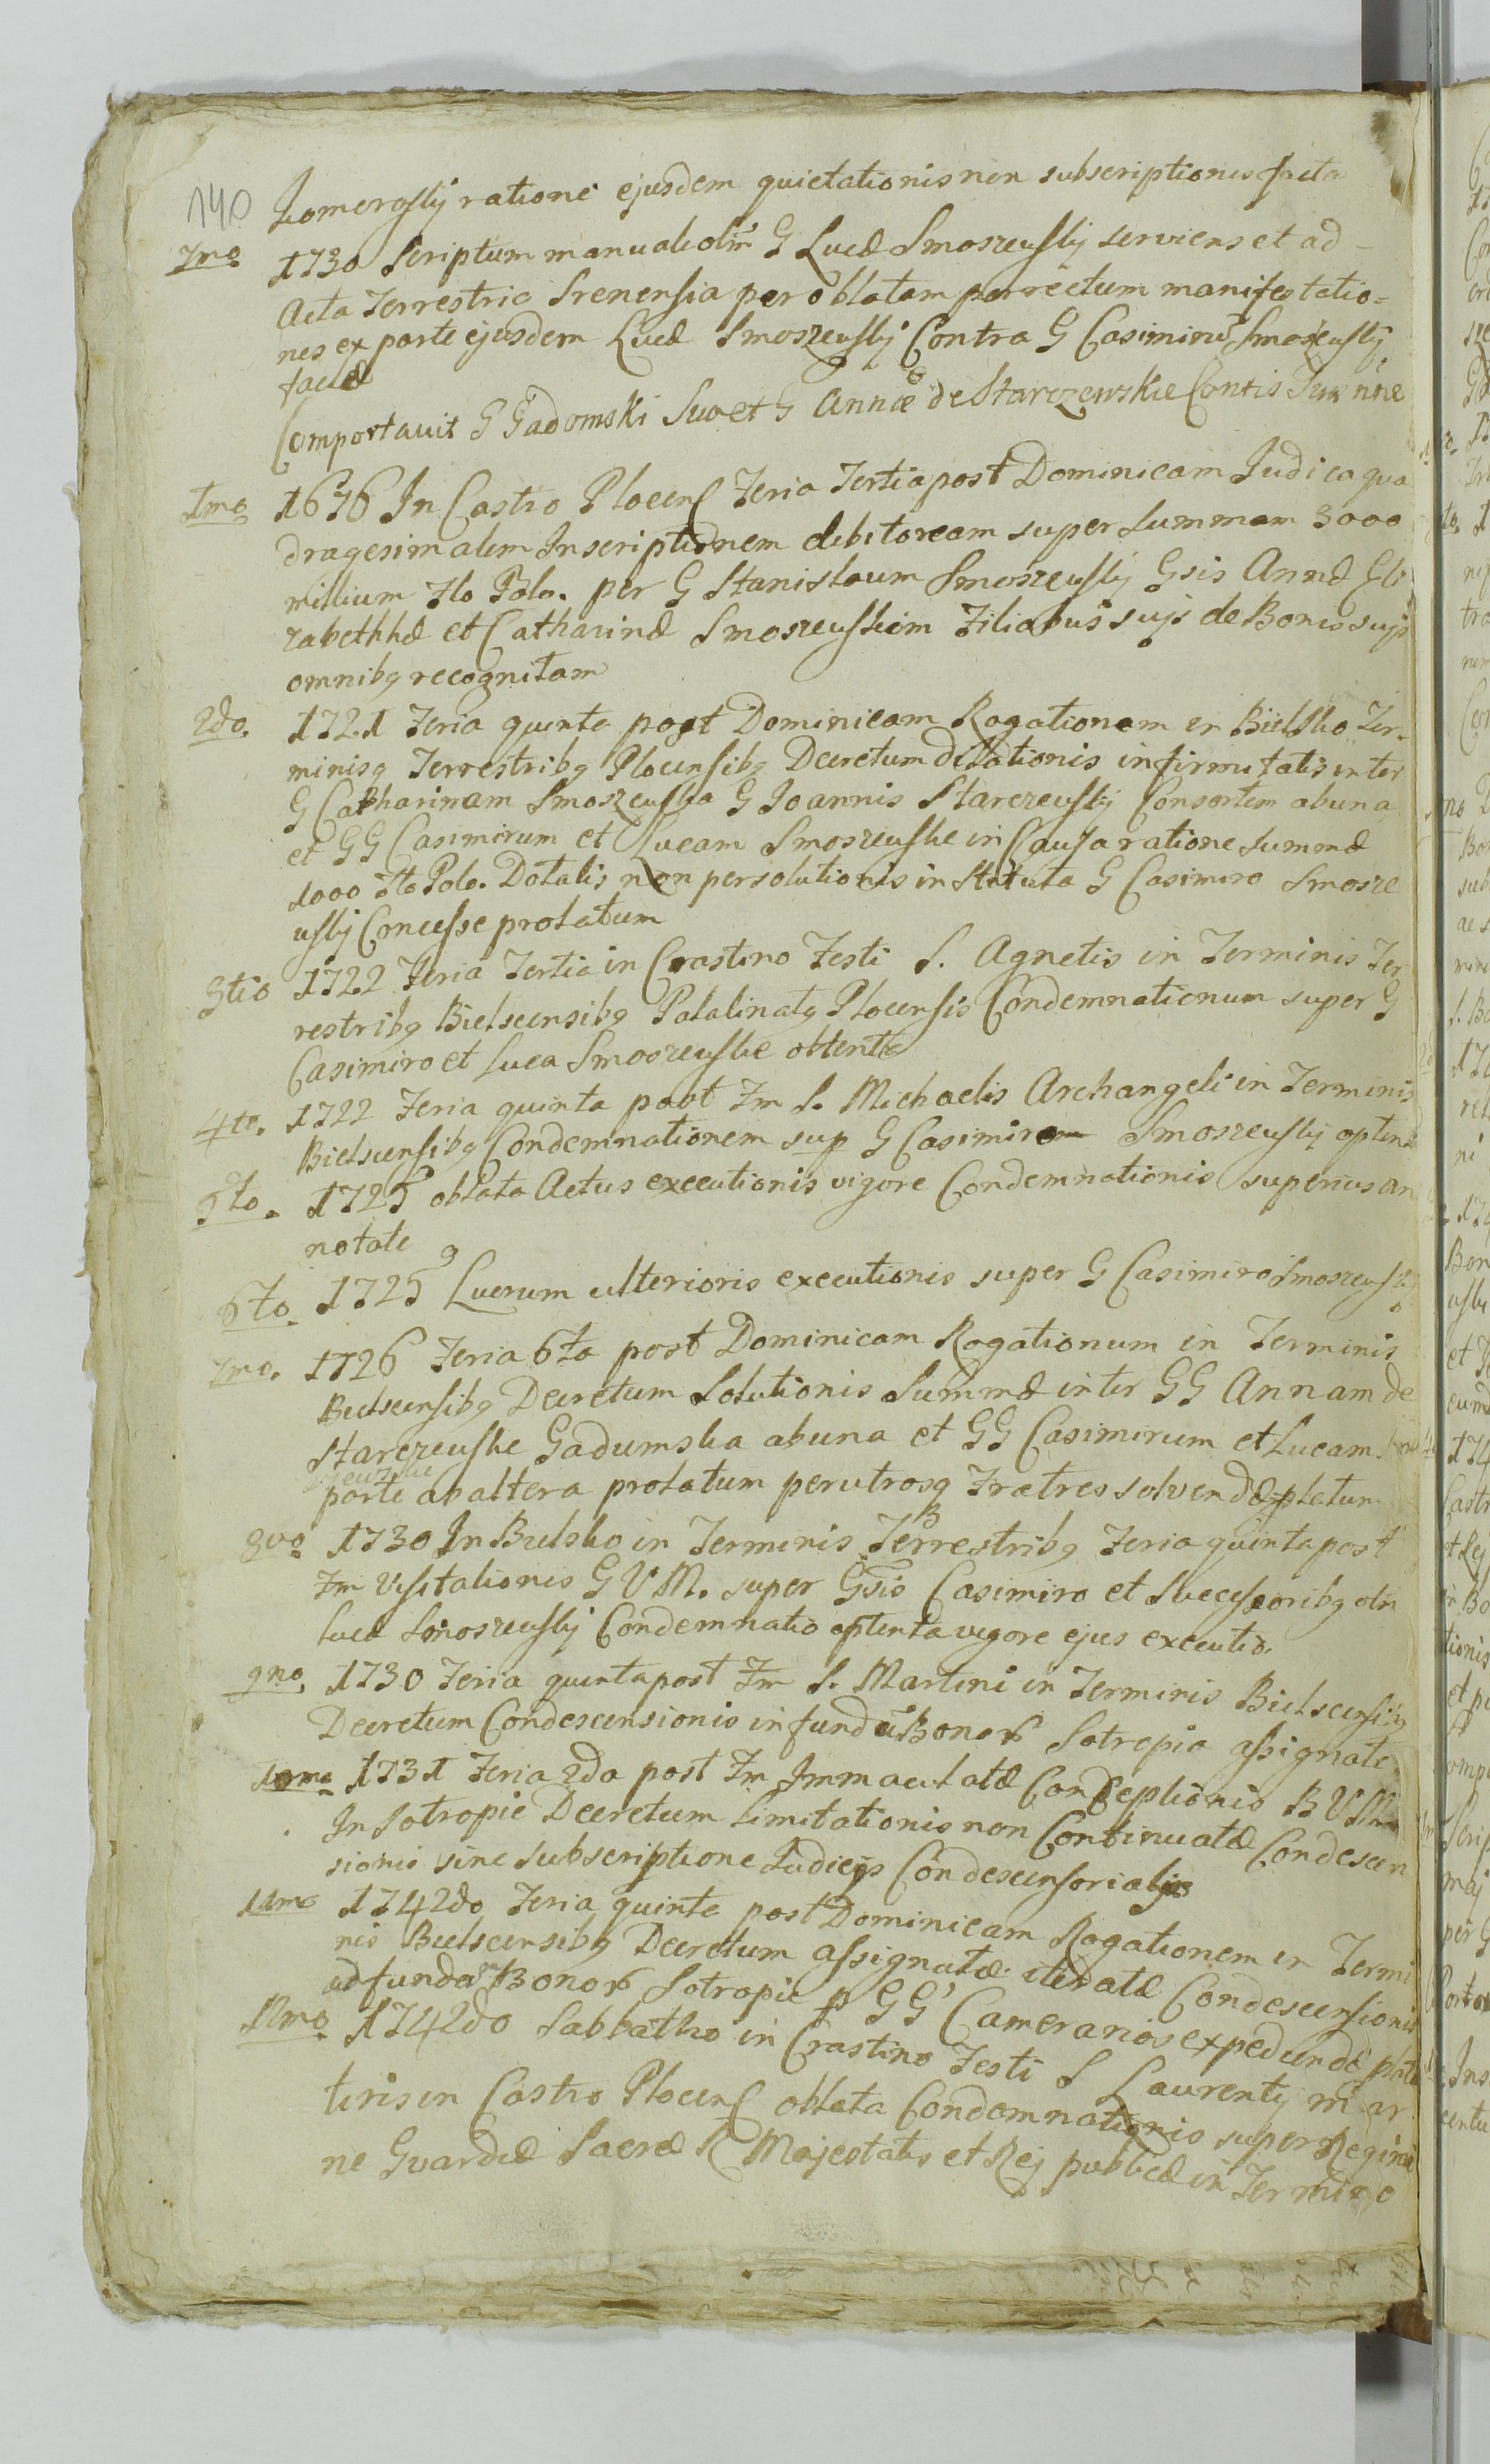 140
Lomerosky ratione ejusdem quietationis non subscriptionis facta
7mo 1730 Scriptum manuale olim G Lucæ Smoszeusky serviens et ad
Acta Terrestria Srenensia per oblatam porrectum manifestatio=
nes ex parte ejusdem Lucæ Smoszeusky Contra G Casimirū Smoszeusky
factæ
Comportavit G Gadomski Suo et G Annæ de Starczewskie Contis Suæ nne
1mo 1676 In Castro Plocens Feria Tertia post Dominicam Judica qua
dragesimalem Inscriptionem debitoream super Summam 3000
millium Flo Polo. per G Stanislaum Smoszeusky Gsis Annæ Eli
zabethhæ et Catharinæ Smoszeuskim Filiabus suis de Bonis suis
omnibq recognitam
2do. 1721 Feria quinta post Dominicam Rogationem in Bielsko Ter-
minisq Terrestribq Plocensibq Decretum dilationis infirmitatis inter
G Catharinam Smoszeuska G Joannis Starczeusky Consortem ab una
et GG Casimirum et Lucam Smoszeuske in Causa ratione Summæ
1000 Flo Polo. Dotalis non persolutionis in Statuta G Casimiro Smosze
usky Concesse prolatum
3tio 1722 Feria Tertia in Crastino Festi S. Agnetis in Terminis Ter
restribq Bielscensibq Palatinatq Plocensis Condemnationum super G
Casimiro et Luca Smoszeuske obtente
4to. 1722 Feria quinta post Fm S. Michaelis Archangeli in Terminis
Bielscensibq Condemnationem sup G Casimirom Smoszeusky optent
5to. 1725 oblata Actus executionis vigore Condemnationis superius an
notate
6to. 1725 Lucrum ulterioris executionis super G Casimiro Smoszeusky
7mo. 1726 Feria 6ta post Dominicam Rogationum in Terminis
Bielscensibq Decretum Solutionis Summæ inter GG Annam de
Starczeuske Gadumska ab una et GG Casimirum et Lucam Smos
zeuskie
parte ab altera prolatum per utrosq Fratres solvendæ platum
8vo 1730 In Bielsko in Terminis Terrestribq Feria quinta post
Fm Visitationis G V M. super Gsis Casimiro et Successoribq olm
Lucæ Smoszeusky Condemnatio optenta vigore ejus executio.
9no. 1730 Feria quinta post Fm S. Martini in Terminis Bielscensibq
Decretum Condescensionis in fundū Bonor Sotropia assignate
10mo 1731 Feria 2da post Fm Immaculatæ Conceptionis B V M
In Sotropie Decretum Limitationis non Continuatæ Condescen
sionis sine Subscriptione Judicys Condescensorialis
11mo 1742do Feria quinta post Dominicam Rogationem in Termi
nis Bielscensibq Decretum assignatæ iteratæ Condescensionis
ad funda Bonor Sotropie p GG Camerarios expediendæ plat
12mo 1742do Sabbatho in Crastino Festi S Laurenty mar
tiris in Castro Plocens oblata Condemnationis super Regimi
ne Guardiæ Sacræ R Majestatis et Rej publicæ in Termino